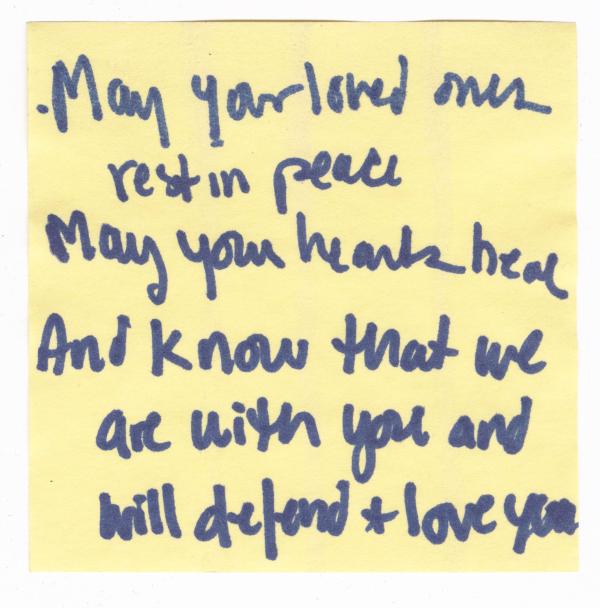 .May your loved ones
rest in peace
May your hearts heal
And know that we
are with you and
will defend + love you